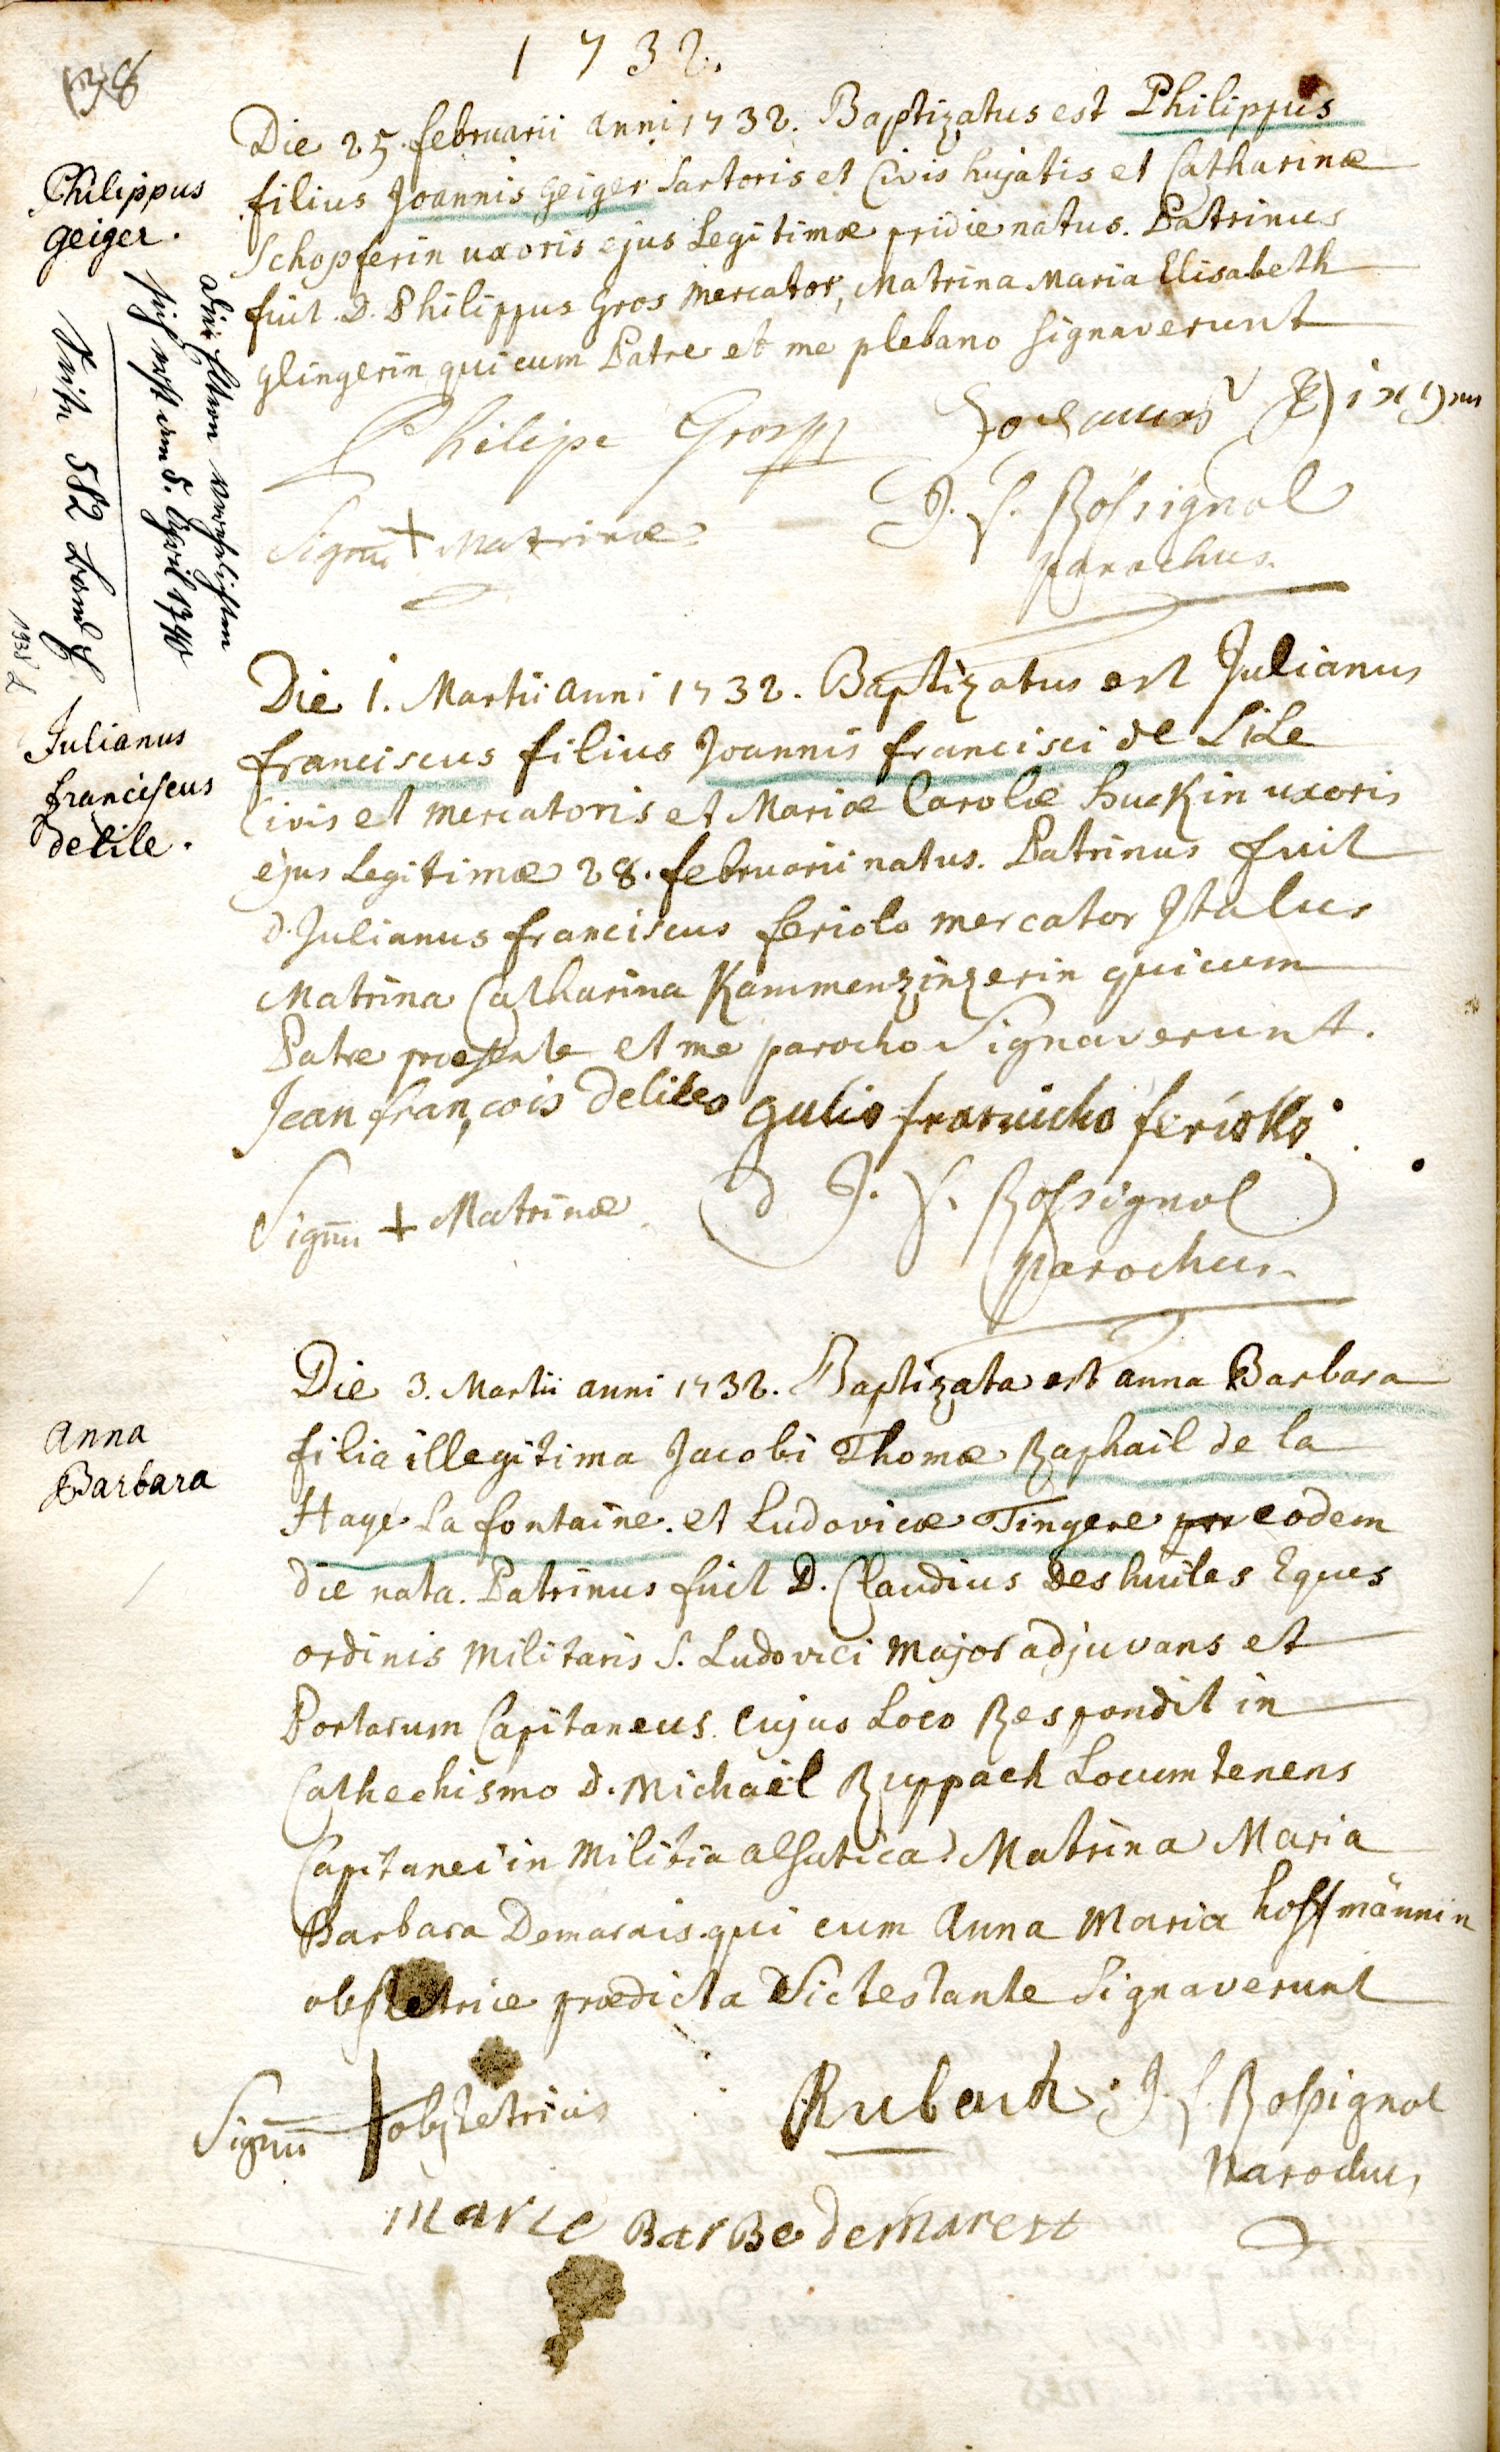 1732.
38
Die 25. februarii anni 1732. Baptizatus est Philippus
filius Joannis Geiger Sartoris et Civis hujatis et Catharinæ
Schopferin uxoris ejus Legitimæ pridie natus. Patrinus
fuit D. Philippus Gros Mercator, Matrina Maria Elisabeth
Glingerin qui cum Patre et me plebano signaverunt
Philipe Gross
J. S. Rossignol
parochus.
Signū + Matrinæ
Philippus
Geiger.
Die Eltern verehelichten
sich erst am 5. April 1740
Seite 582 Band
1938
Die 1. Martii anni 1732. Baptizatus est Julianus
franciscus filius Joannis francisci de Lile
Civis et mercatoris et Mariæ Carolæ Huckin uxoris
ejus Legitimæ 28. februarii natus. Patrinus fuit
d. Julianus franciscus feriolo mercator Italus
Matrina Catharina Kammenzinzerin qui cum
Patre præsente et me parocho Signaverunt.
Jean françois Delile
J. S. Rossignol
parochus
Signū + Matrinæ
Julianus
franciscus
Delile.
Die 3. Martii anni 1732. Baptizata est anna Barbara
filia illegitima Jacobi Thomæ Raphail de la
Haye La fontaine. et Ludovicæ Tingere eodem
die nata. Patrinus fuit D. Claudius Deshuiles Eques
ordinis Militaris S. Ludovici Major adjuvans et
Portarum Capitaneus. Cujus Loco Respondit in
Cathechismo d. Michaël Ruppach Locumtenens
Capitanei in Militia alsatica. Matrina Maria
Barbara Demarais. qui cum Anna Maria hoffmännin
obstetrice prædicta Sic testante Signaverunt
Signū + obstetricis
Rubach
J. S. Rossignol
Parochus
Marie BarBe demarest
Anna
Barbara